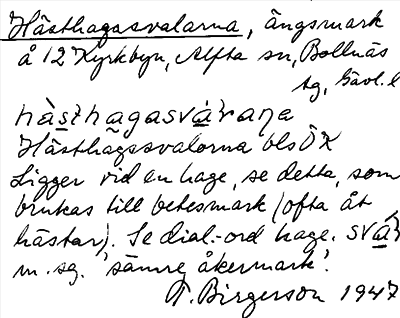 Hästhagasvalarna, ängsmark
å 12 Kyrkbyn, Alfta sn, Bollnäs
tg, Gävl. l
hàsthagasvárana
Hästhagasvalorna bls ÖK
Ligger vid en hage, se detta, som
brukas till betesmark (ofta åt
hästar). Se dial.-ord hage.
m. sg. 'sämre åkermark'.
T. Birgerson 1947